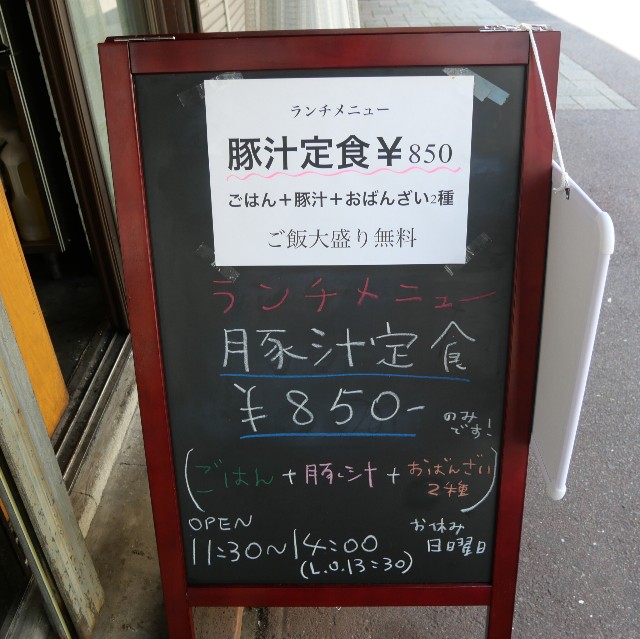 ランチメニュー
豚汁定食￥850
ごはん＋豚汁＋おばんざい2種
ご飯大盛り無料
ランチメニュー
豚汁定食
￥850-
のみです!
(ごはん＋豚汁＋おばんざい2種)
OPEN
11:30～14:00
(L.O.13:30)
お休み
日曜日